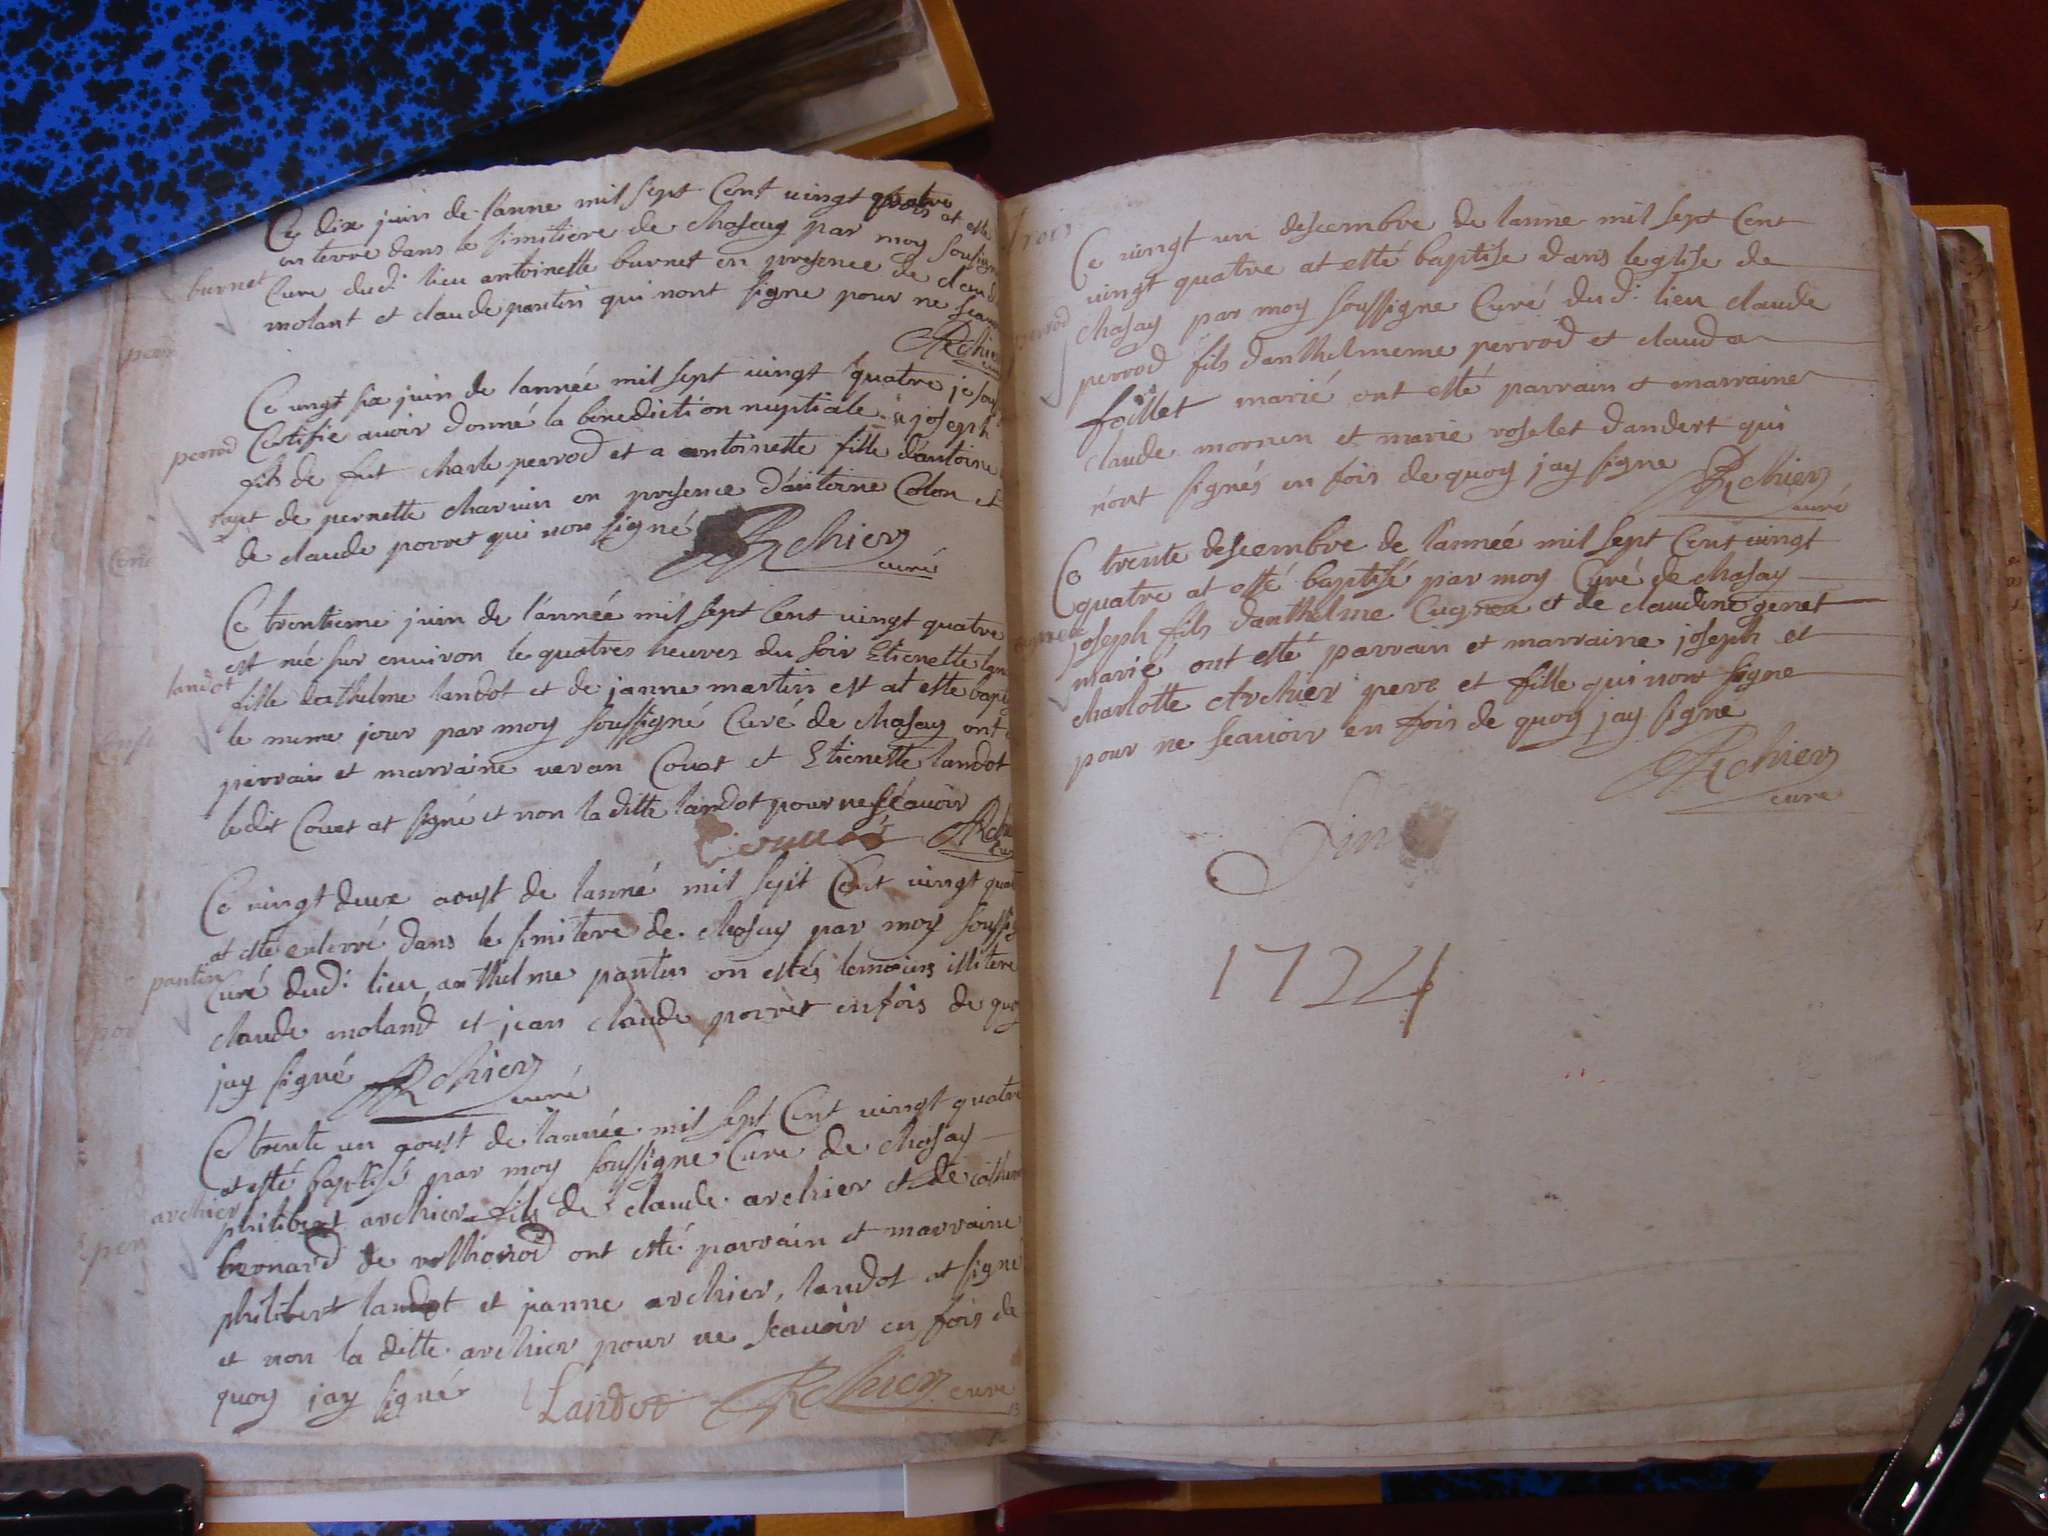 Ce dix juin de lanne mil sept Cent vingt quatre at esté
enterre dans le simitiere de chasay par moy soussigne
burnet
Cure dud: lieu antoinette burnet en presence de claude
molant et claude pantin qui nont signe pour ne scavoir
Archier
Ce vingt six juin de lannée mil sept vingt quatre je sous
Certifie avoir donné la benediction nuptiale a joseph
perrod
fils de fut charle perrod et a antoinette fille dantoine
et de pernette charvin en presence dantoine Colon et
de claude porret qui nont signé Archier
curé
Ce trentieme juin de lannée mil sept Cent vingt quatre
est née sur environ le quatres heures du soir Etienette
landot
fille dathelme landot et de janne martin est at este bapt
le mume jour par moy soussigné Curé de chasay ont
parrain et marraine veran Couet et Etienette landot
ledit Couet at signé et non la ditte landot pour ne scavoir
Ce vingt deux aoust de lanné mil sept Cent vingt quat
at esté enterré dans le simitere de chasay par moy soussig
pantin
Curé dud: lieu anthelme pantin on estés temoins illitere
claude moland et jean claude porret en fois de quoy
jay signé Archier
curé
Ce trente un aoust de lannée mil sept Cent vingt quatre
at esté baptisé par moy soussigne Cure de chasay
archier
philibert archier fils de claude archier et de catherine
bernard de ont esté parrain et marraine
philibert landot et janne archier, landot at signé
et non la ditte archier pour ne scavoir en fois de
quoy jay signé Landot Archier cure
Ce vingt un descembre de lanne mil sept Cent
vingt quatre at esté baptise dans leglise de
perrod
chasay par moy soussigne Curé dud: lieu claude
perrod fils danthelmeme perrod et clauda
foillet marié ont esté parrain et marraine
claude mornen et marie roselet dandert qui
n'ont signés en fois de quoy jay signe Archier
curé
Ce trente descembre de lannée mil sept Cent vingt
quatre at esté baptisé par moy Curé de chasay
joseph fils danthelme Cugnet et de claudine genet
marié ont esté parrain et marraine joseph et
charlotte Archier pere et fille qui nont signe
pour ne scavoir en fois de quoy jay signe
Archier
cure
Fin
1724